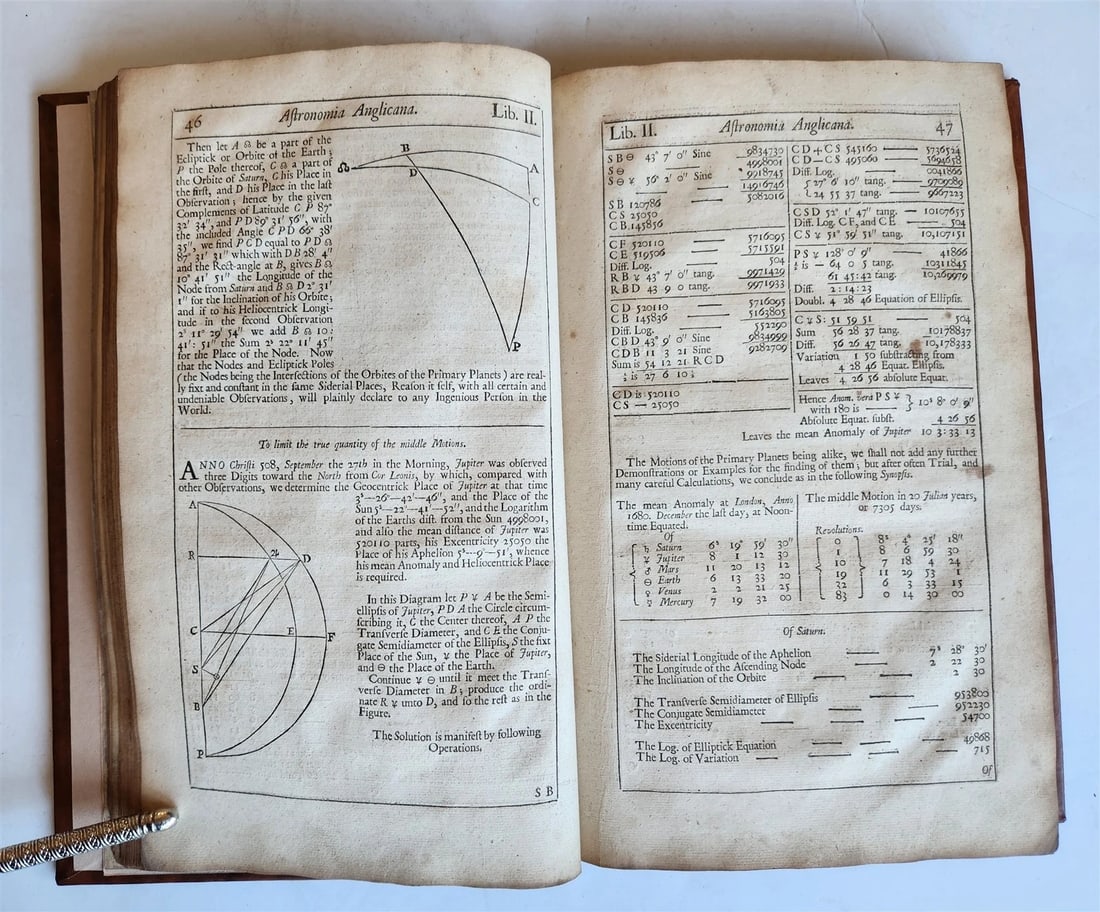 46 Astronomia Anglicana. Lib. II.
Then let A ☊ be a part of the
Ecliptick or Orbite of the Earth;
P the Pole thereof, C ☊ a part of
the Orbite of Saturn, C his Place in
the first, and D his Place in the last
Observation; hence by the given
Complements of Latitude C P 87°
32' 34", and P D 89° 31' 56", with
the included Angle C P D 66° 38'
35", we find P C D equal to P D ☊
87° 31' 31" which with D B 28' 4"
and the Rect-angle at B, gives B ☊
10° 41' 51" the Longitude of the
Node from Saturn and B ☊ D 2° 31'
1" for the Inclination of his Orbite;
and if to his Heliocentrick Longi-
tude in the second Observation
2ˢ 11° 29' 54" we add B ☊ 10:
41': 51" the Sum 2ˢ 22° 11' 45"
for the Place of the Node. Now
that the Nodes and Ecliptick Poles
(the Nodes being the Intersections of the Orbites of the Primary Planets) are real-
ly fixt and constant in the same Siderial Places, Reason it self, with all certain and
undeniable Observations, will plainly declare to any Ingenious Person in the
World.
☊ B D A C P
To limit the true quantity of the middle Motions.
ANNO Christi 508, September the 27th in the Morning, Jupiter was observed
three Digits toward the North from Cor Leonis, by which, compared with
other Observations, we determine the Geocentrick Place of Jupiter at that time
3ˢ—26°—42'—46", and the Place of the
Sun 5ˢ—22°—41'—52", and the Logarithm
of the Earths dist. from the Sun 4998001,
and also the mean distance of Jupiter was
520110 parts, his Excentricity 25050 the
Place of his Aphelion 5ˢ—9°—51', whence
his mean Anomaly and Heliocentrick Place
is required.
In this Diagram let P ♃ A be the Semi-
ellipsis of Jupiter, P D A the Circle circum-
scribing it, C the Center thereof, A P the
Transverse Diameter, and C E the Conju-
gate Semidiameter of the Ellipsis, S the fixt
Place of the Sun, ♃ the Place of Jupiter,
and ⊖ the Place of the Earth.
Continue ♃ ⊖ until it meet the Trans-
verse Diameter in B; produce the ordi-
nate R ♃ unto D, and so the rest as in the
Figure.
The Solution is manifest by following
Operations,
A
R ♃ D
C E F
S
B
P
S B
Lib. II. Astronomia Anglicana. 47
S B ⊖ 43° 7' 0" Sine 9834730
S ⊖ 4998001
S ⊖ ♃ 56° 2' 0" Sine 9918745
14916746
S B 120786 5082016
C S 25050
C B 145836
C F 520110 5716095
C E 519506 5715591
Diff. Log. 504
R B ♃ 43° 7' 0" tang. 9971429
R B D 43 9 0 tang. 9971933
C D 520110 5716095
C B 145836 5163805
Diff. Log. 552290
C B D 43° 9' 0" Sine 9834999
C D B 11 3 21 Sine 9282709
Sum is 54 12 21 R C D
½ is 27 6 10½
C D is 520110
C S — 25050
C D + C S 545160 — 5736524
C D — C S 495060 — 5694658
Diff. Log. 0041866
27° 6' 10" tang. 9709089
24 55 37 tang. 9667223
C S D 52° 1' 47" tang. — 10107655
Diff. Log. C F, and C E — 504
C S ♃ 51° 59' 51" tang. 10,107151
P S ♃ 128° 0' 9" 41866
½ is — 64 0 5 tang. 10311845
61 45:42 tang. 10,269979
Diff. 2:14:23
Doubl. 4 28 46 Equation of Ellipsis.
C ♃ S: 51 59 51 — 504
Sum 56 28 37 tang. 10178837
Diff. 56 26 47 tang. 10,178333
Variation 1 50 substracting from
4 28 46 Equat. Ellipsis.
Leaves 4 26 56 absolute Equat.
Hence Anom. vera P S ♃
with 180 is — 10ˢ 8° 0' 9"
Absolute Equat. subst. 4 26 56
Leaves the mean Anomaly of Jupiter 10 3:33 13
The Motions of the Primary Planets being alike, we shall not add any further
Demonstrations or Examples for the finding of them; but after often Trial, and
many careful Calculations, we conclude as in the following Synopsis.
The mean Anomaly at London, Anno
1680. December the last day, at Noon-
time Equated.
Of
♄ Saturn 6ˢ 19° 59' 30"
♃ Jupiter 8 1 12 30
♂ Mars 11 20 13 12
⊖ Earth 6 13 33 20
♀ Venus 2 2 21 25
☿ Mercury 7 19 32 00
The middle Motion in 20 Julian years,
or 7305 days.
Revolutions.
0 8ˢ 4° 25' 18"
1 8 6 59 30
10 7 18 4 24
19 11 29 53 1
32 6 3 33 15
83 0 14 30 00
Of Saturn.
The Siderial Longitude of the Aphelion — 7ˢ 28° 30'
The Longitude of the Ascending Node — 2 22 30
The Inclination of the Orbite — 2 30
The Transverse Semidiameter of Ellipsis — 953800
The Conjugate Semidiameter — 952230
The Excentricity — 54700
The Log. of Elliptick Equation — 49868
The Log. of Variation — 715
Of